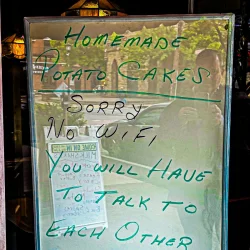 HOMEMADE
POTATO CAKES
SORRY
NO WIFI,
YOU WILL HAVE
TO TALK TO
EACH OTHER